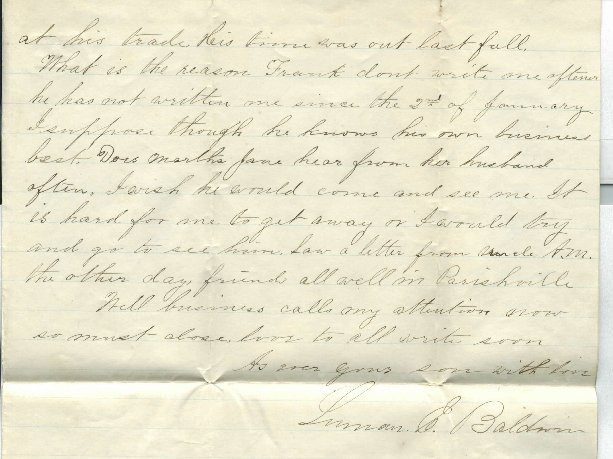 at his trade His time was out last fall.
What is the reason Frank dont write me oftener
he has not written me since the 2nd of January
I suppose though he knows his own business
best. Does Martha Jane hear from her husband
often, I wish he would come and see me. It
is hard for me to get away or I would try
and go to see him. Saw a letter from Uncle A.M.
the other day, friends all well in Parishville
Well business calls my attention now
so must close, love to all write soon
As ever your son with love
Luman. E. Baldwin